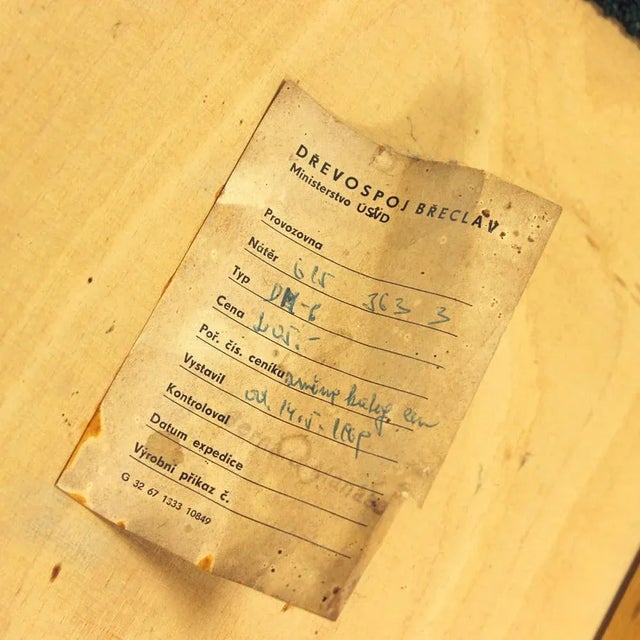 DŘEVOSPOJ BŘECLAV
Ministerstvo ÚSVD
Provozovna
Nátěr 615 363 3
Typ
Cena 205.-
Poř. čís. ceníku
Vystavil od 14.5.
Kontroloval
Datum expedice
Výrobní příkaz č.
G 32 67 1333 10849